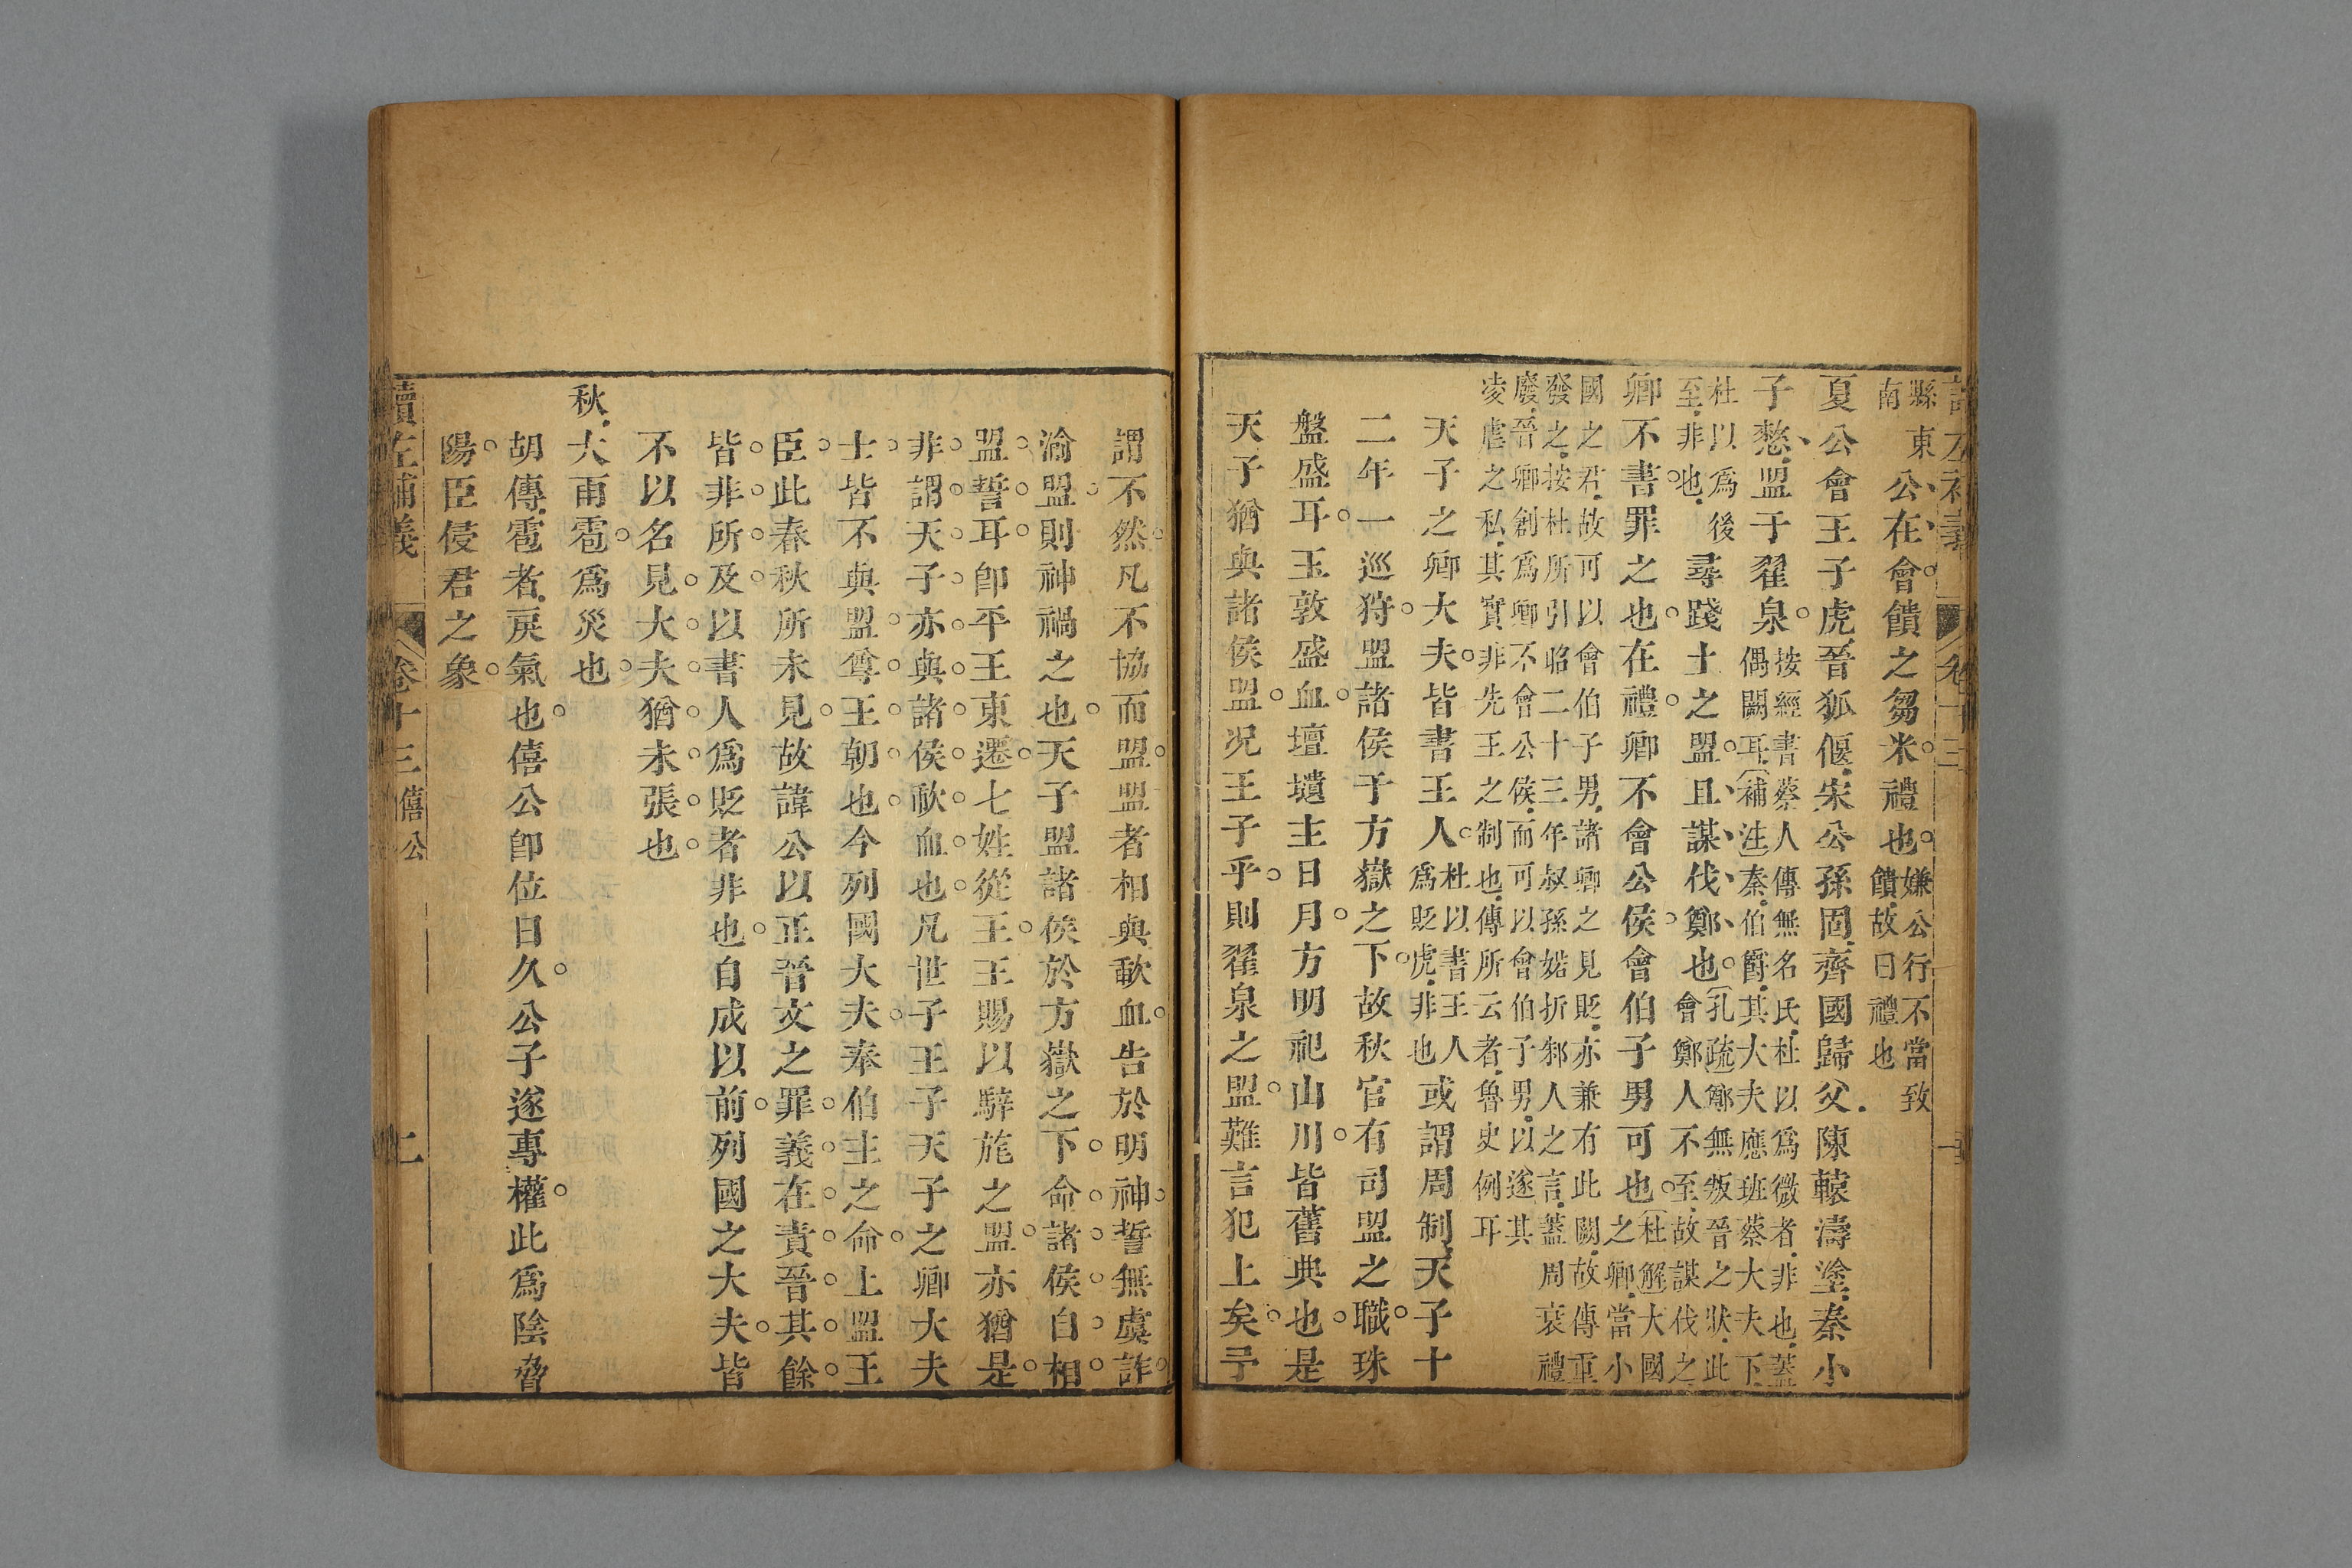 縣東
南
公在會饋之芻米禮也
嫌公行不當致
饋故曰禮也
夏公會王子虎晉狐偃宋公孫固齊國歸父陳轅濤塗秦小
子憗盟于翟泉
按經書蔡人傳無名氏杜以爲微者非也蓋
偶闕耳補注秦伯爵其大夫應班蔡大夫下
杜以爲後
至非也
尋踐土之盟且謀伐鄭也
孔疏鄭無叛晉之狀此
會鄭人不至故謀伐之
卿不書罪之也在禮卿不會公侯會伯子男可也
杜解大國
之卿當小
國之君故可以會伯子男諸卿之見貶亦兼有此闕故傳重
發之按杜所引昭二十三年叔孫婼折邾人之言蓋周衰禮
廢晉卿創爲卿不會公侯而可以會伯子男以遂其
凌虐之私其實非先王之制也傳所云者魯史例耳
天子之卿大夫皆書王人
杜以書王人
爲貶虎非也
或謂周制天子十
二年一巡狩盟諸侯于方嶽之下故秋官有司盟之職珠
盤盛耳玉敦盛血壇壝主日月方明祀山川皆舊典也是
天子猶與諸侯盟况王子乎則翟泉之盟難言犯上矣予
謂不然凡不協而盟盟者相與歃血告於明神誓無虞詐
渝盟則神禍之也天子盟諸侯於方嶽之下命諸侯自相
盟誓耳卽平王東遷七姓從王王賜以騂旄之盟亦猶是
非謂天子亦與諸侯歃血也凡世子王子天子之卿大夫
士皆不與盟尊王朝也今列國大夫奉伯主之命上盟王
臣此春秋所未見故諱公以正晉文之罪義在責晉其餘
皆非所及以書人爲貶者非也自成以前列國之大夫皆
不以名見大夫猶未張也
秋大雨雹爲災也
胡傳雹者戾氣也僖公卽位日久公子遂專權此爲陰脅
陽臣侵君之象
讀左補義 卷十三 僖公 二